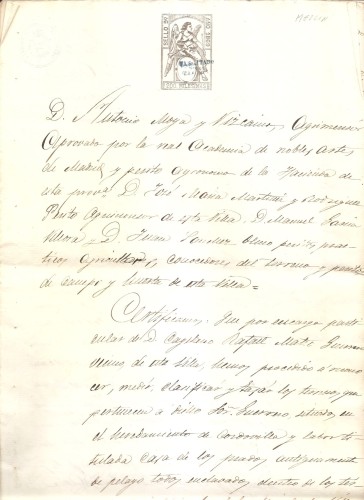 HABILITADO
D. Antonio Moya y Vizcaino, Agrimensor
Aprovado por la real Academia de nobles Artes
de Madrid y perito agronomo de la Hacienda de
esta prova. D. José Maria Martinez y Rodriguez
Perito Agrimensor de esta Villa D. Manuel Garcia
Mora y D. Juan Sanchez peritos prac-
ticos Agricultores, conocedores del terreno y
de campo y huerta de esta Villa =
Certificamos: Que por encargo parti-
cular de D. Cayetano Rafael Mate Guerrero
vecino de esta Villa, hemos procedido á recono-
cer, medir, clasificar y tasar las tierras, que
pertenecen á dicho Sor. Guerrero, situadas, en
el heredamiento de Cordovilla y labor ti-
tulada Casa de los prados, antiguamente
de pelayo todo enclavado, dentro de los ter-